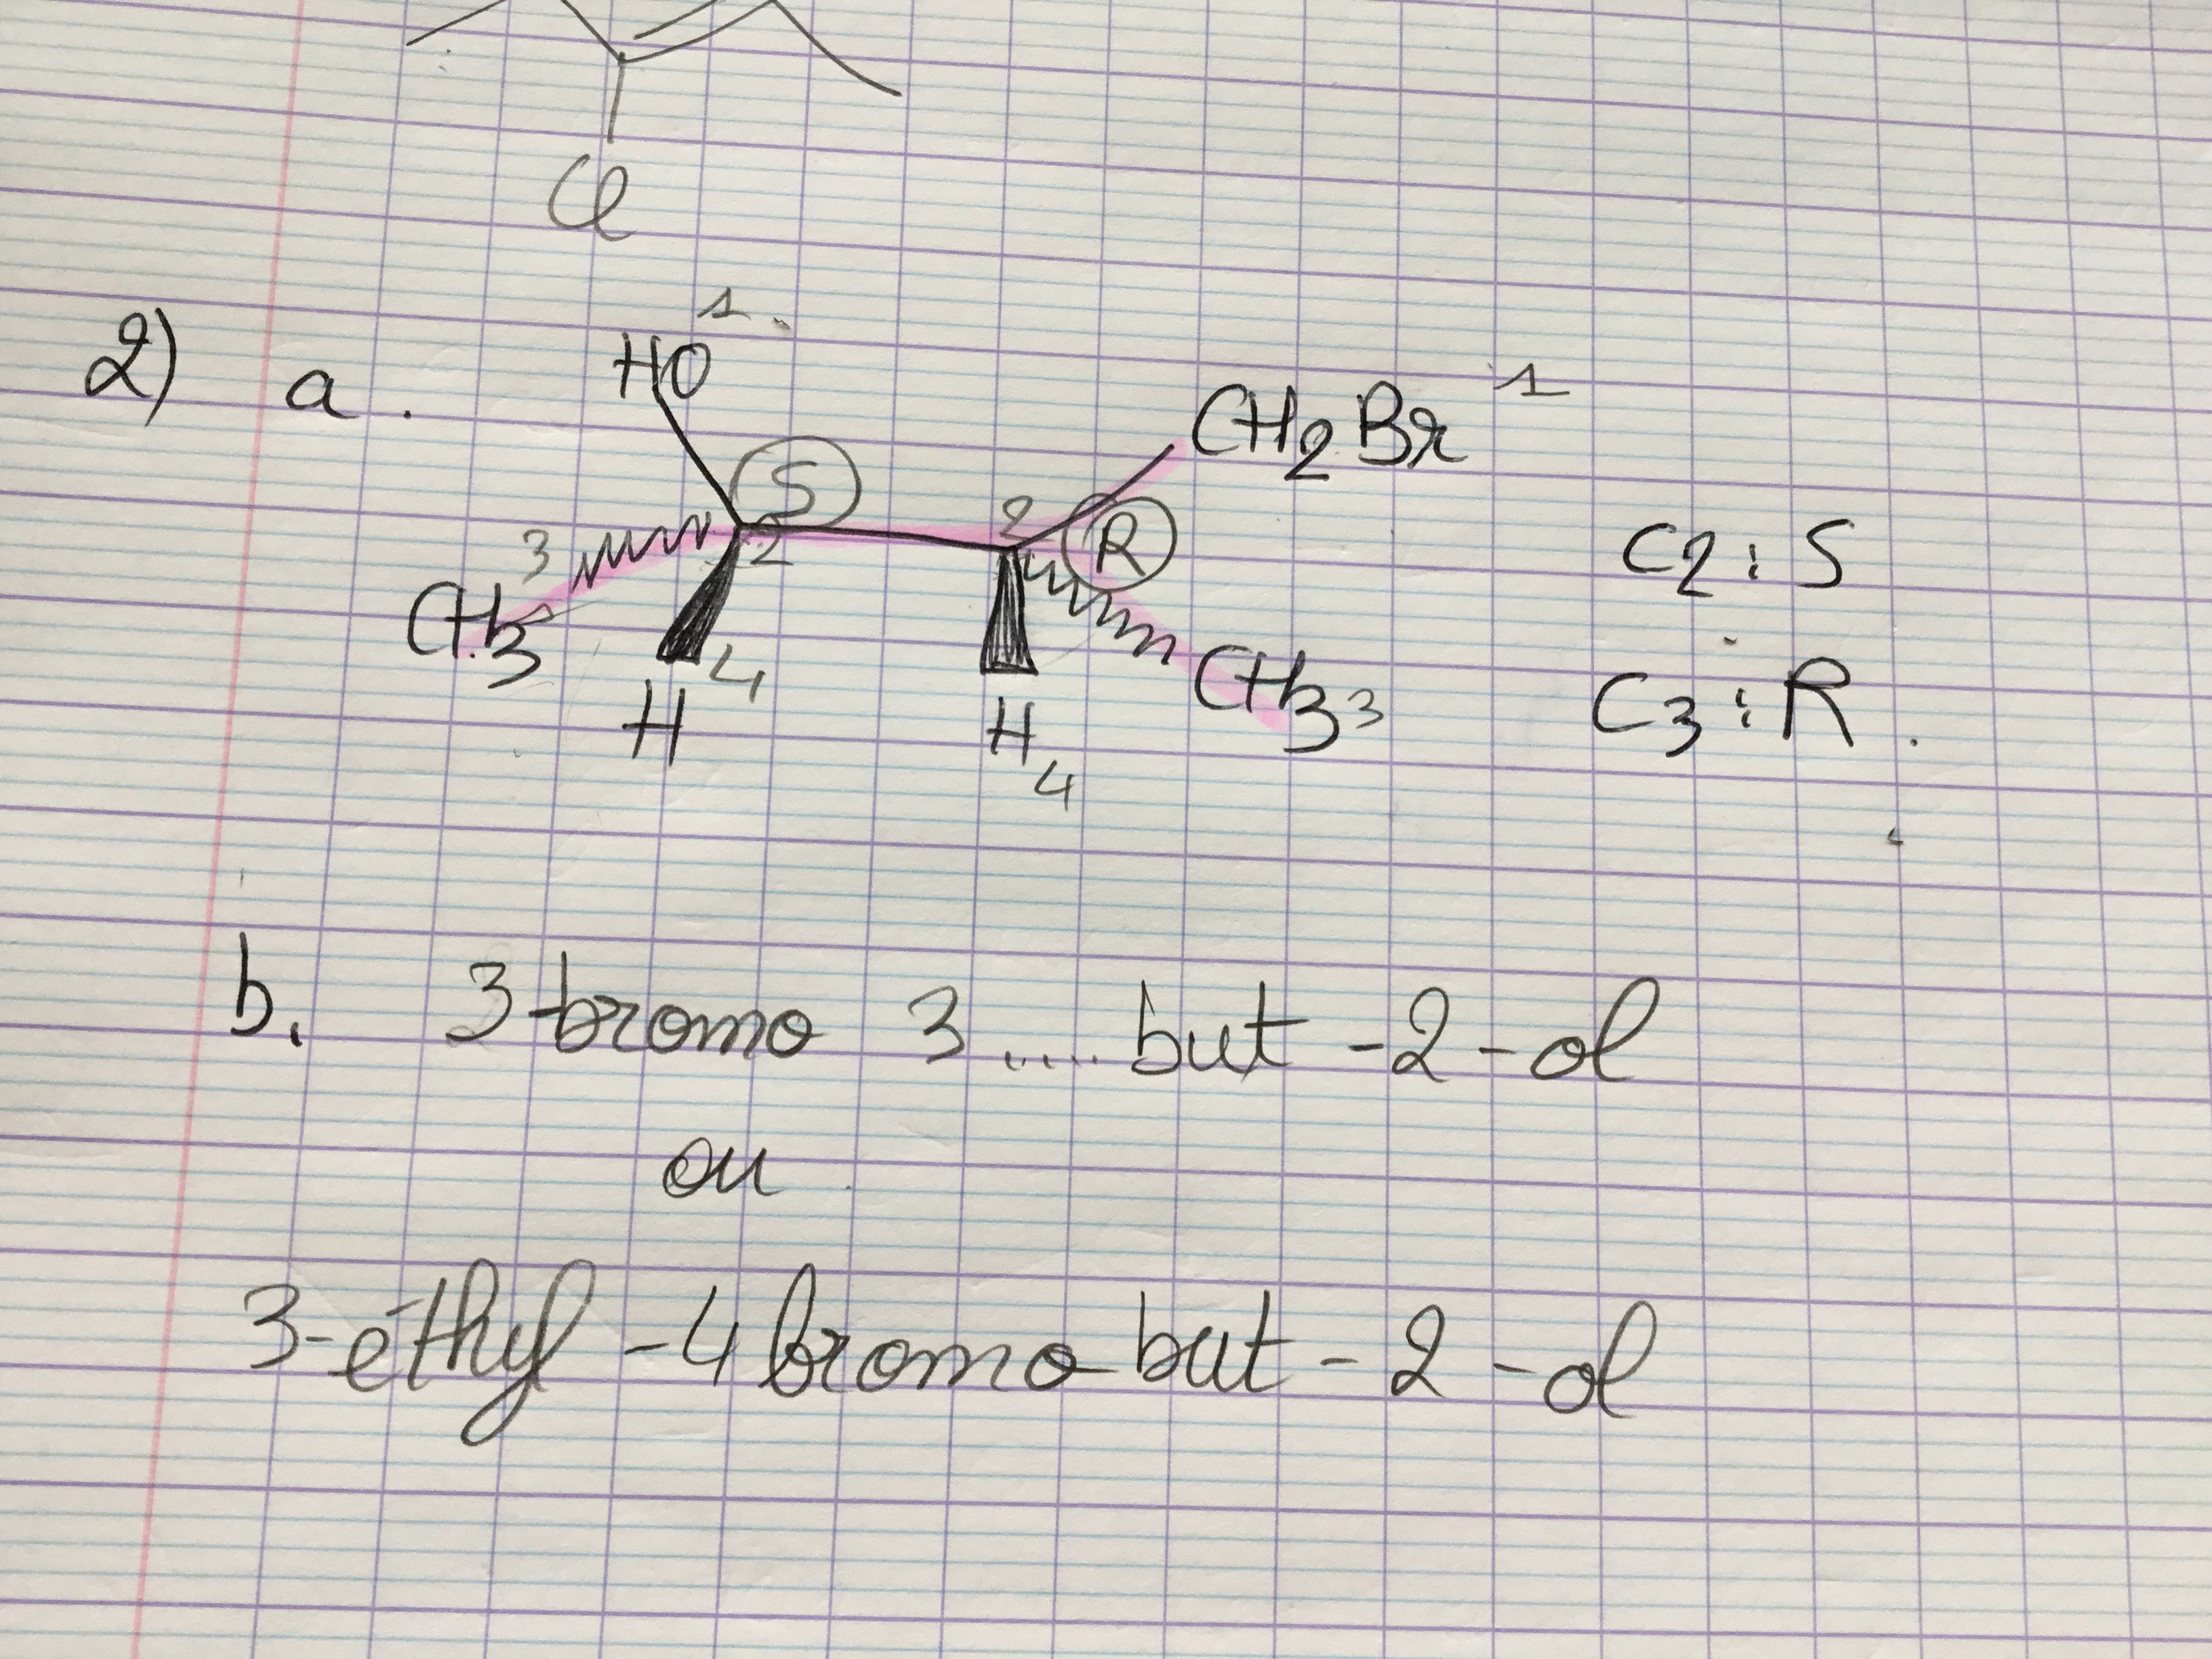 Cl
2) a.
HO 1
CH2Br 1
S
3 2 2 R
CH3 4 CH3 3
H H 4
C2 : S
C3 : R.
b. 3-bromo 3 ..... but -2-ol
ou
3-éthyl -4 bromo but -2 -ol